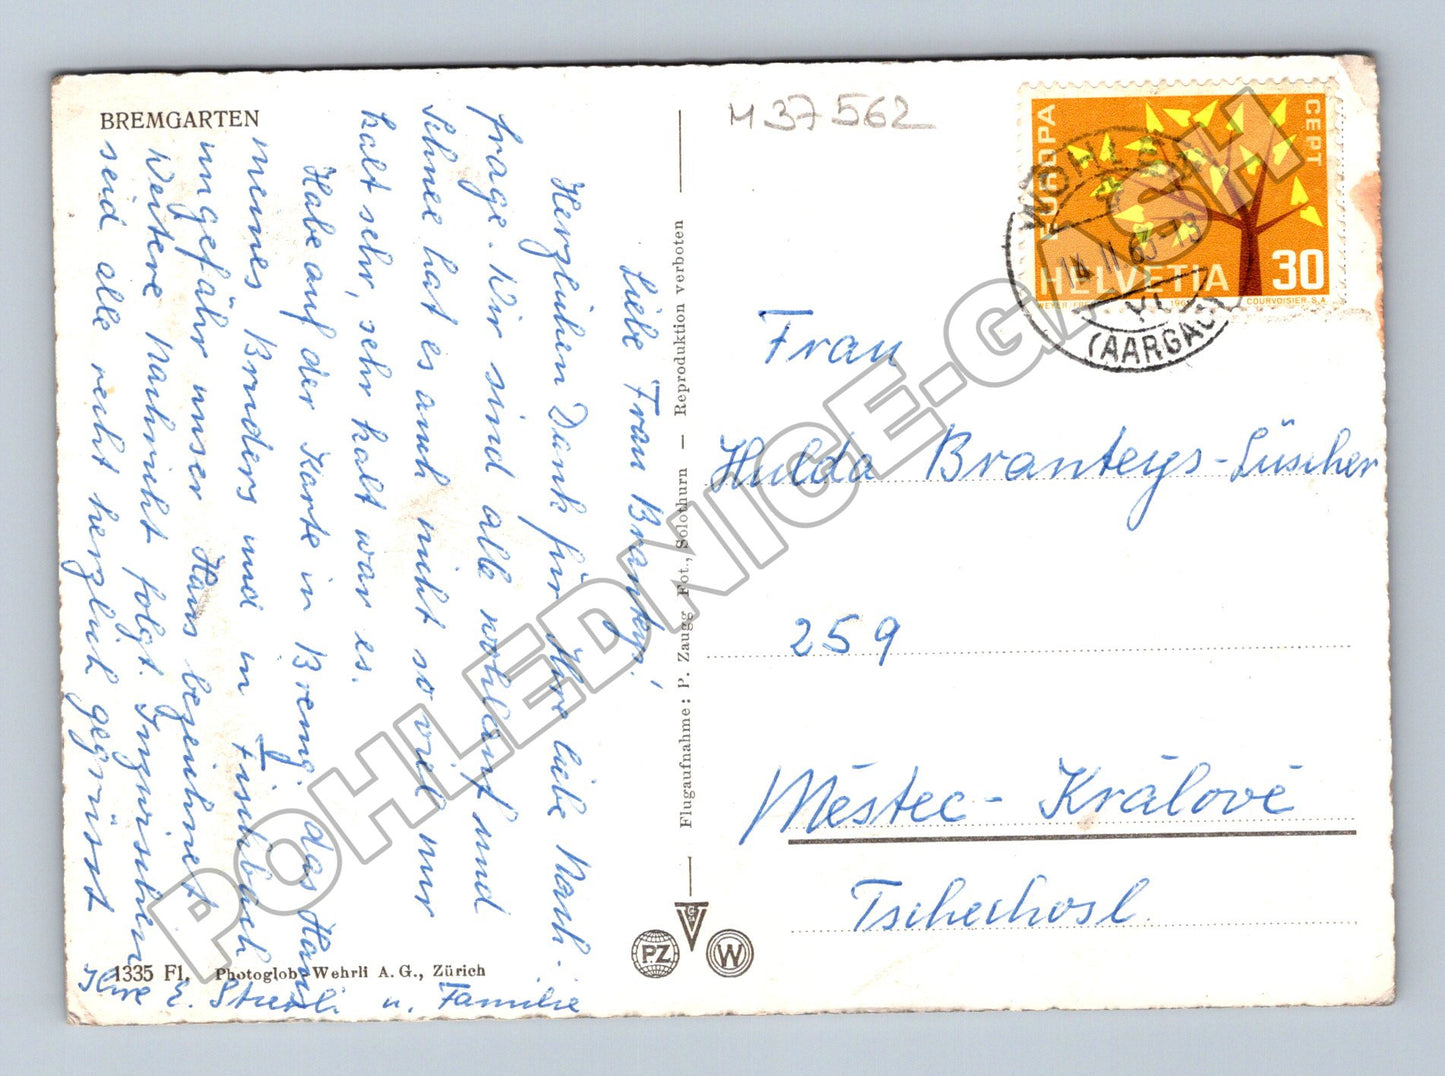 BREMGARTEN
M 37 562
Liebe Frau Branteys!
Herzlichen Dank für Ihre liebe Nach-
frage. Wir sind alle wohlauf und
Schnee hat es auch nicht so viel nur
kalt sehr, sehr kalt war es.
Habe auf der Karte in Bremg. das Haus
meines Bruders und in Fischbach
ungefähr unser Haus bezeichnet
Weitere Nachricht folgt. Inzwischen
seid alle recht herzlich gegrüsst
Ihre E. u. Familie
1335 Fl. Photoglob-Wehrli A. G., Zürich
Flugaufnahme: P. Zaugg Fot., Solothurn — Reproduktion verboten
PZ
W
EUROPA
CEPT
HELVETIA
30
COURVOISIER S.A.
WOHLEN
14 II 63-13
(AARGAU)
Frau
Hulda Branteys-Lüscher
259
Městec-Králové
Tschechosl.
POHLEDNICE-GASH